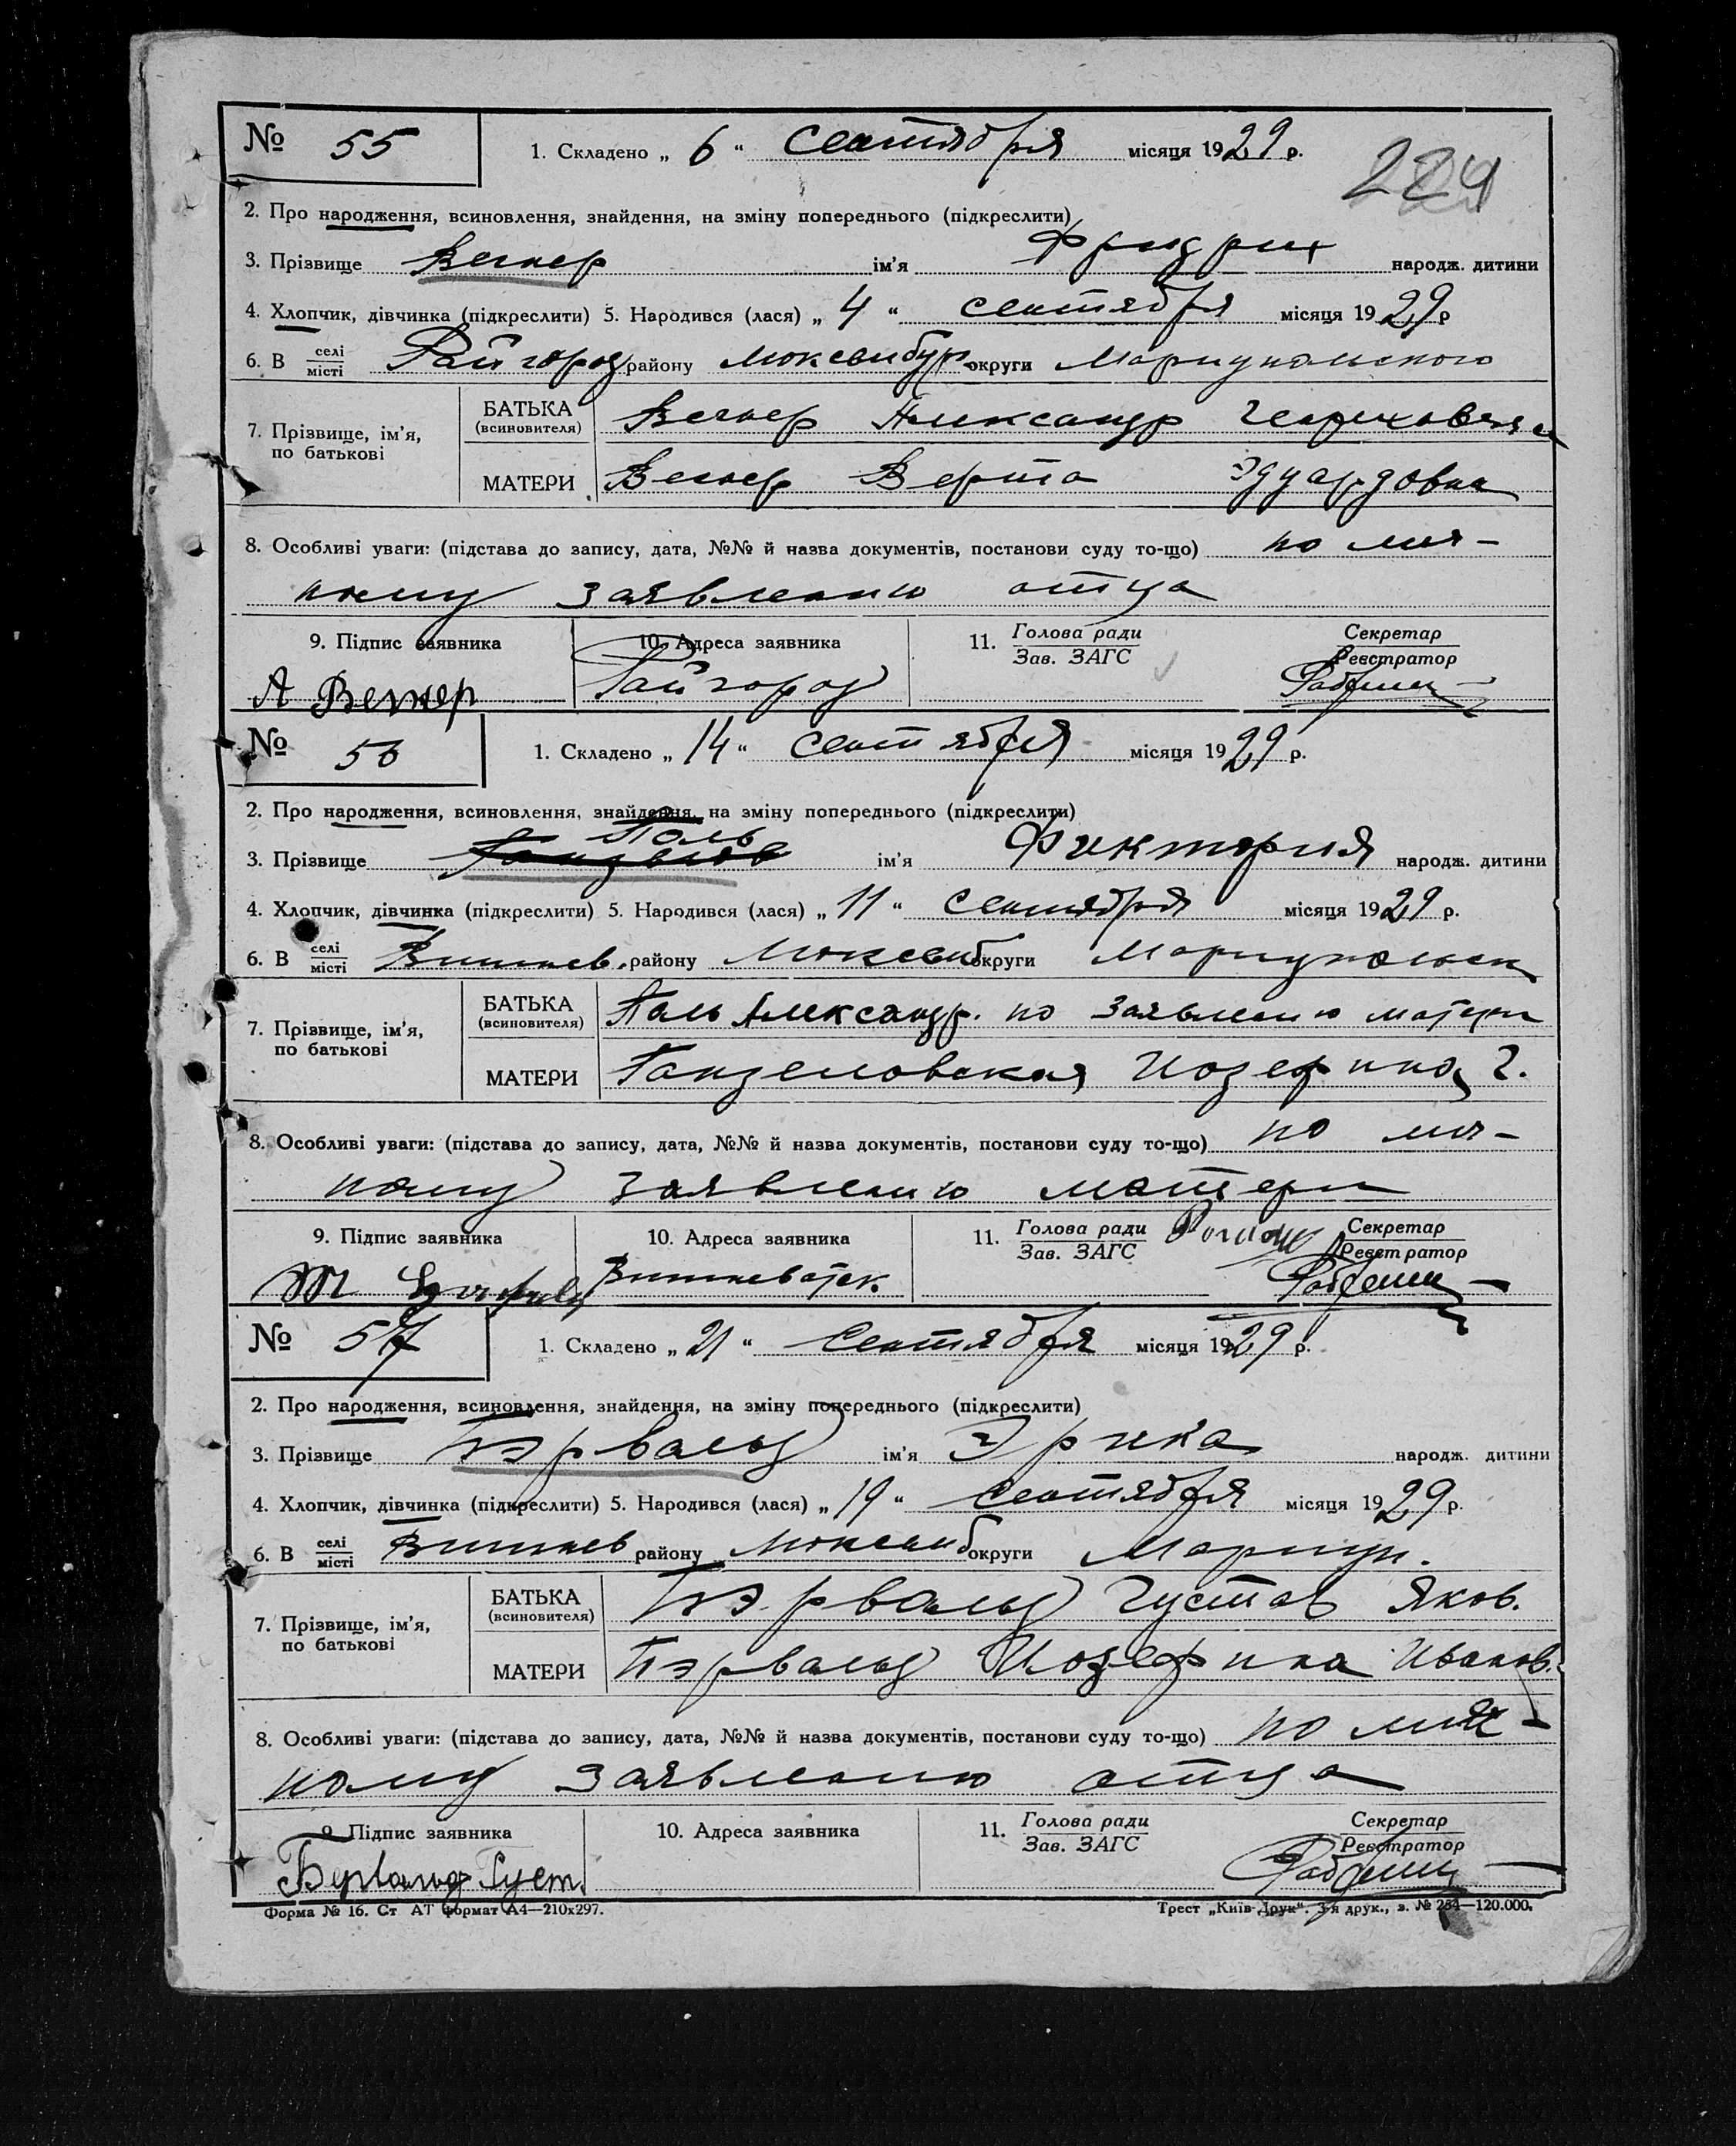 224
№ 55 1. Складено „ 6 “ сентября місяця 1929 р.
2. Про народження, всиновлення, знайдення, на зміну попереднього (підкреслити)
3. Прізвище Вегнер ім'я Фридрих народж. дитини
4. Хлопчик, дівчинка (підкреслити) 5. Народився (лася) „ 4 “ сентября місяця 1929 р
6. В селі/місті Райгород району Люксембург округи Мариупольского
7. Прізвище, ім'я, по батькові
БАТЬКА (всиновителя) Вегнер Александр
МАТЕРИ Вегнер Берта Эдуардовна
8. Особливі уваги: (підстава до запису, дата, №№ й назва документів, постанови суду то-що) по лич-
ному заявлению отца
9. Підпис заявника 10. Адреса заявника 11. Голова ради/Зав. ЗАГС Секретар/Реєстратор
А Вегнер Райгород
№ 56 1. Складено „ 14 “ сентября місяця 1929 р.
2. Про народження, всиновлення, знайдення, на зміну попереднього (підкреслити)
3. Прізвище Поль ім'я Фиктория народж. дитини
4. Хлопчик, дівчинка (підкреслити) 5. Народився (лася) „ 11 “ сентября місяця 1929 р.
6. В селі/місті Вишнев. району Люксемб округи Мариупольск
7. Прізвище, ім'я, по батькові
БАТЬКА (всиновителя) Поль Александр. по заявлению матери
МАТЕРИ Ганзеловская Иозефина Г.
8. Особливі уваги: (підстава до запису, дата, №№ й назва документів, постанови суду то-що) по лич-
ному заявлению матери
9. Підпис заявника 10. Адреса заявника 11. Голова ради/Зав. ЗАГС Секретар/Реєстратор
№ 57 1. Складено „ 21 “ сентября місяця 1929 р.
2. Про народження, всиновлення, знайдення, на зміну попереднього (підкреслити)
3. Прізвище Бэрвальд ім'я Эрика народж. дитини
4. Хлопчик, дівчинка (підкреслити) 5. Народився (лася) „ 19 “ сентября місяця 1929 р.
6. В селі/місті Вишнев району Люксемб округи Мариуп.
7. Прізвище, ім'я, по батькові
БАТЬКА (всиновителя) Бэрвальд Густав Яков.
МАТЕРИ Бэрвальд Иозефина Иванов.
8. Особливі уваги: (підстава до запису, дата, №№ й назва документів, постанови суду то-що) по лич-
ному заявлению отца
9. Підпис заявника 10. Адреса заявника 11. Голова ради/Зав. ЗАГС Секретар/Реєстратор
Густ.
Форма № 16. Ст АТ формат А4—210х297. Трест „Київ-Друк“. 3-я друк., з. № 254—120.000.